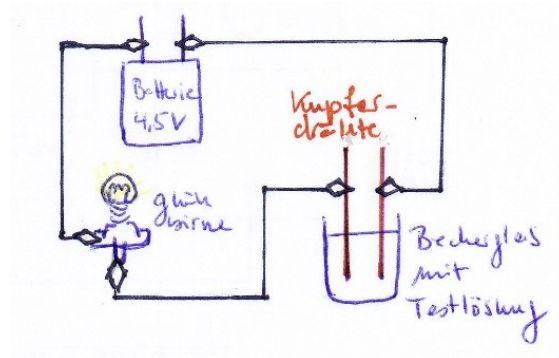 Batterie
4,5V
Kupfer-
drähte
glüh
birne
Becherglas
mit
Testlösung